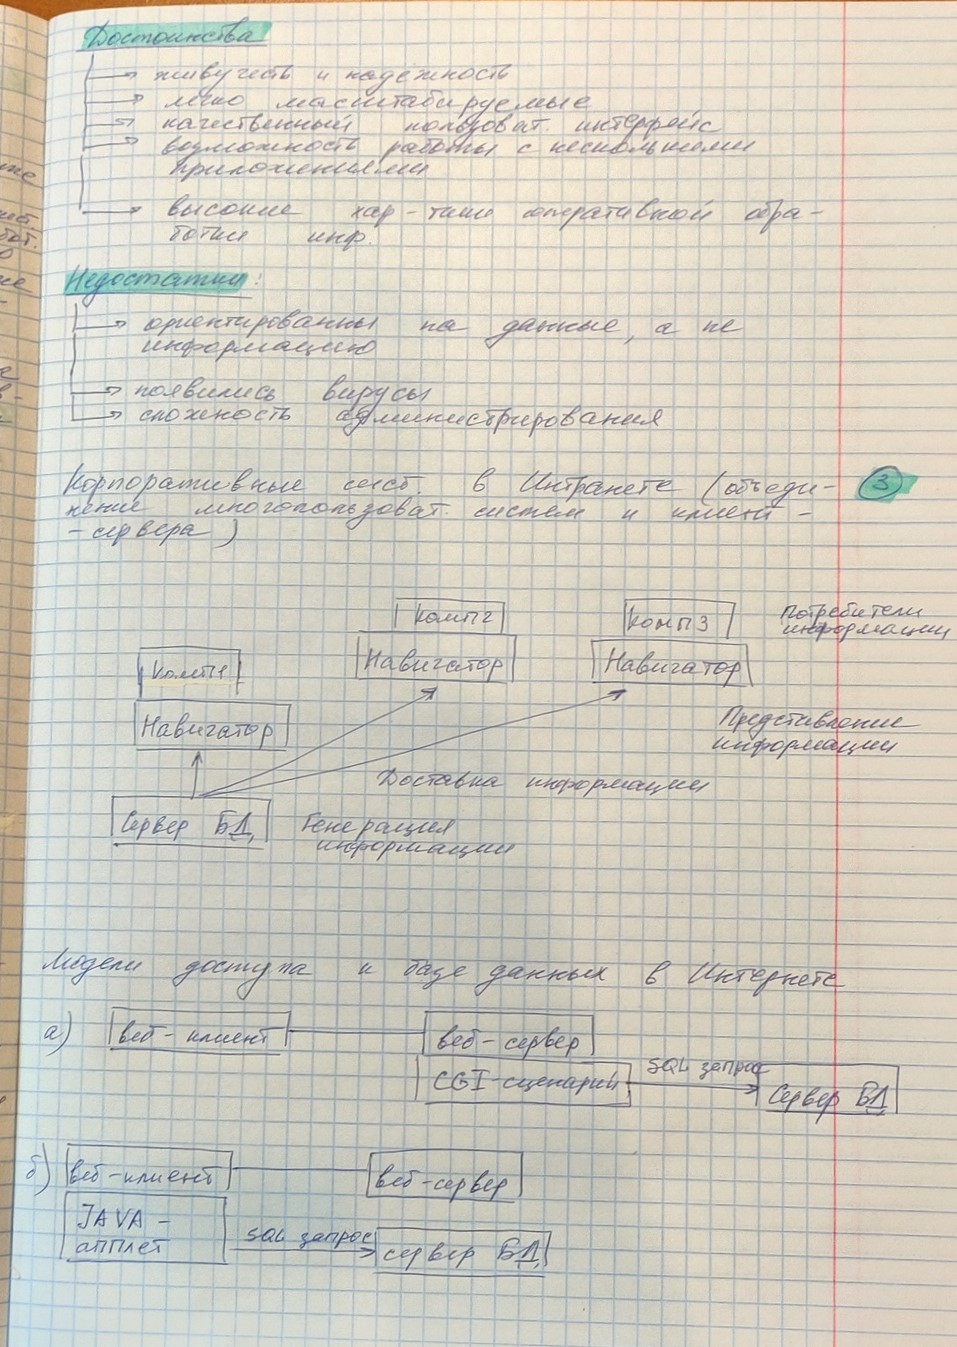 Достоинства
живучесть и надёжность
легко масштабируемые
качественный пользоват. интерфейс
возможность работы с несколькими
приложениями
высокие хар-тики оперативной обра-
ботки инф.
Недостатки:
ориентированны на данные, а не
информацию
появились вирусы
сложность администрирования
Корпоративные сист. в Интранете (объеди- 3
нение многопользоват. систем и клиент-
-сервера)
Комп2 Комп3 Потребители
информации
Навигатор Навигатор
Комп1
Навигатор
Представление
информации
Доставка информации
Сервер БД Генерация
информации
Модели доступа к базе данных в Интернете
а) веб-клиент веб-сервер
CGI-сценарий SQL запрос Сервер БД
б) веб-клиент веб-сервер
JAVA-
апплет SQL запрос сервер БД